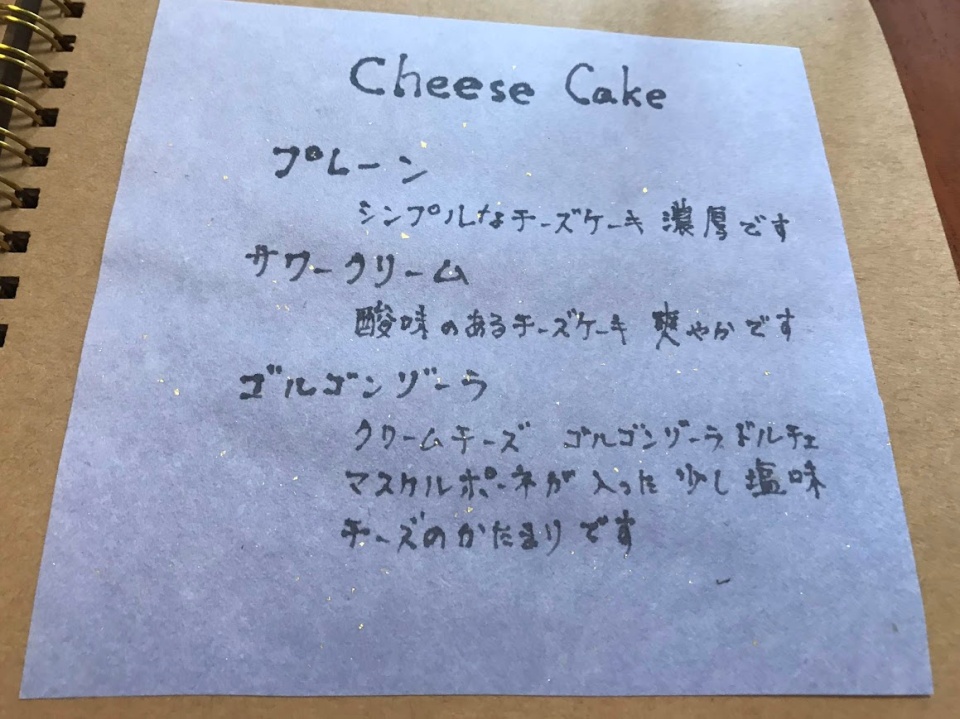 Cheese Cake
プレーン
シンプルなチーズケーキ 濃厚です
サワークリーム
酸味のあるチーズケーキ 爽やかです
ゴルゴンゾーラ
クリームチーズ ゴルゴンゾーラドルチェ
マスケルポーネが入った少し塩味
チーズのかたまりです